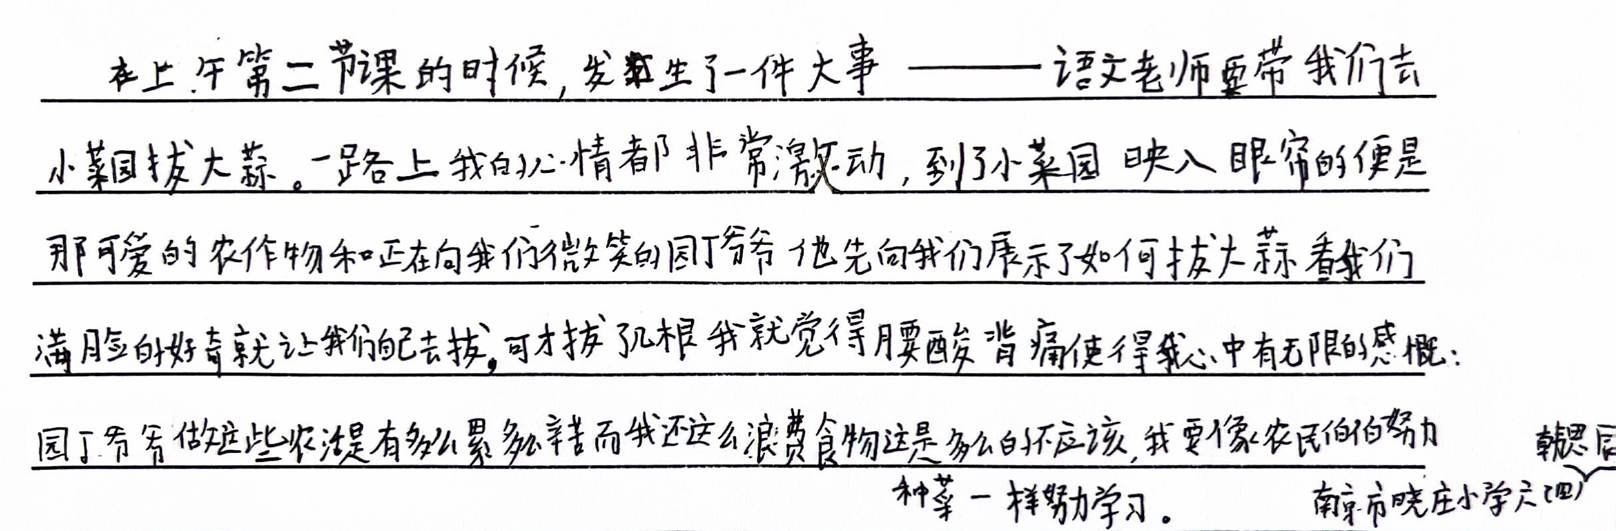 在上午第二节课的时候,发生了一件大事——语文老师要带我们去
小菜园拔大蒜。一路上我的心情都非常激动,到了小菜园映入眼帘的便是
那可爱的农作物和正在向我们微笑的园丁爷爷他先向我们展示了如何拔大蒜看我们
满脸的好奇就让我们自己去拔。可才拔了几根我就觉得腰酸背痛使得我心中有无限的感慨:
园丁爷爷做这些农活是有多么累多么辛苦而我还这么浪费食物这是多么的不应该,我要像农民伯伯努力
种菜一样努力学习。
南京市晓庄小学六(四)
韩思同